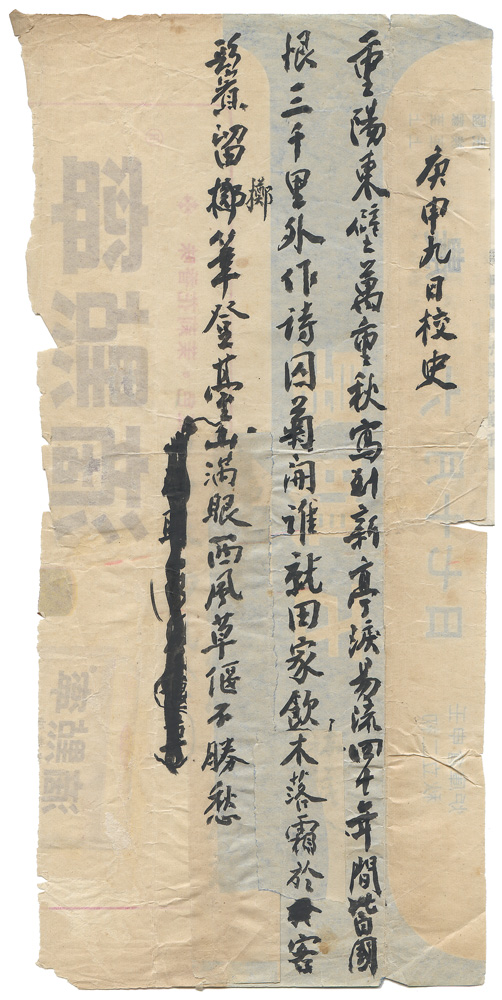 庚申九日校史
重陽東壁萬重秋寫到新亭淚易流四十年間皆國
恨三千里外作詩囚菊開誰就田家飲木落霜於客
鬢留擲筆登高山滿眼西風草偃不勝愁
擲